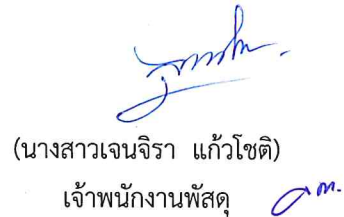 (นางสาวเจนจิรา แก้วโชติ)
เจ้าพนักงานพัสดุ